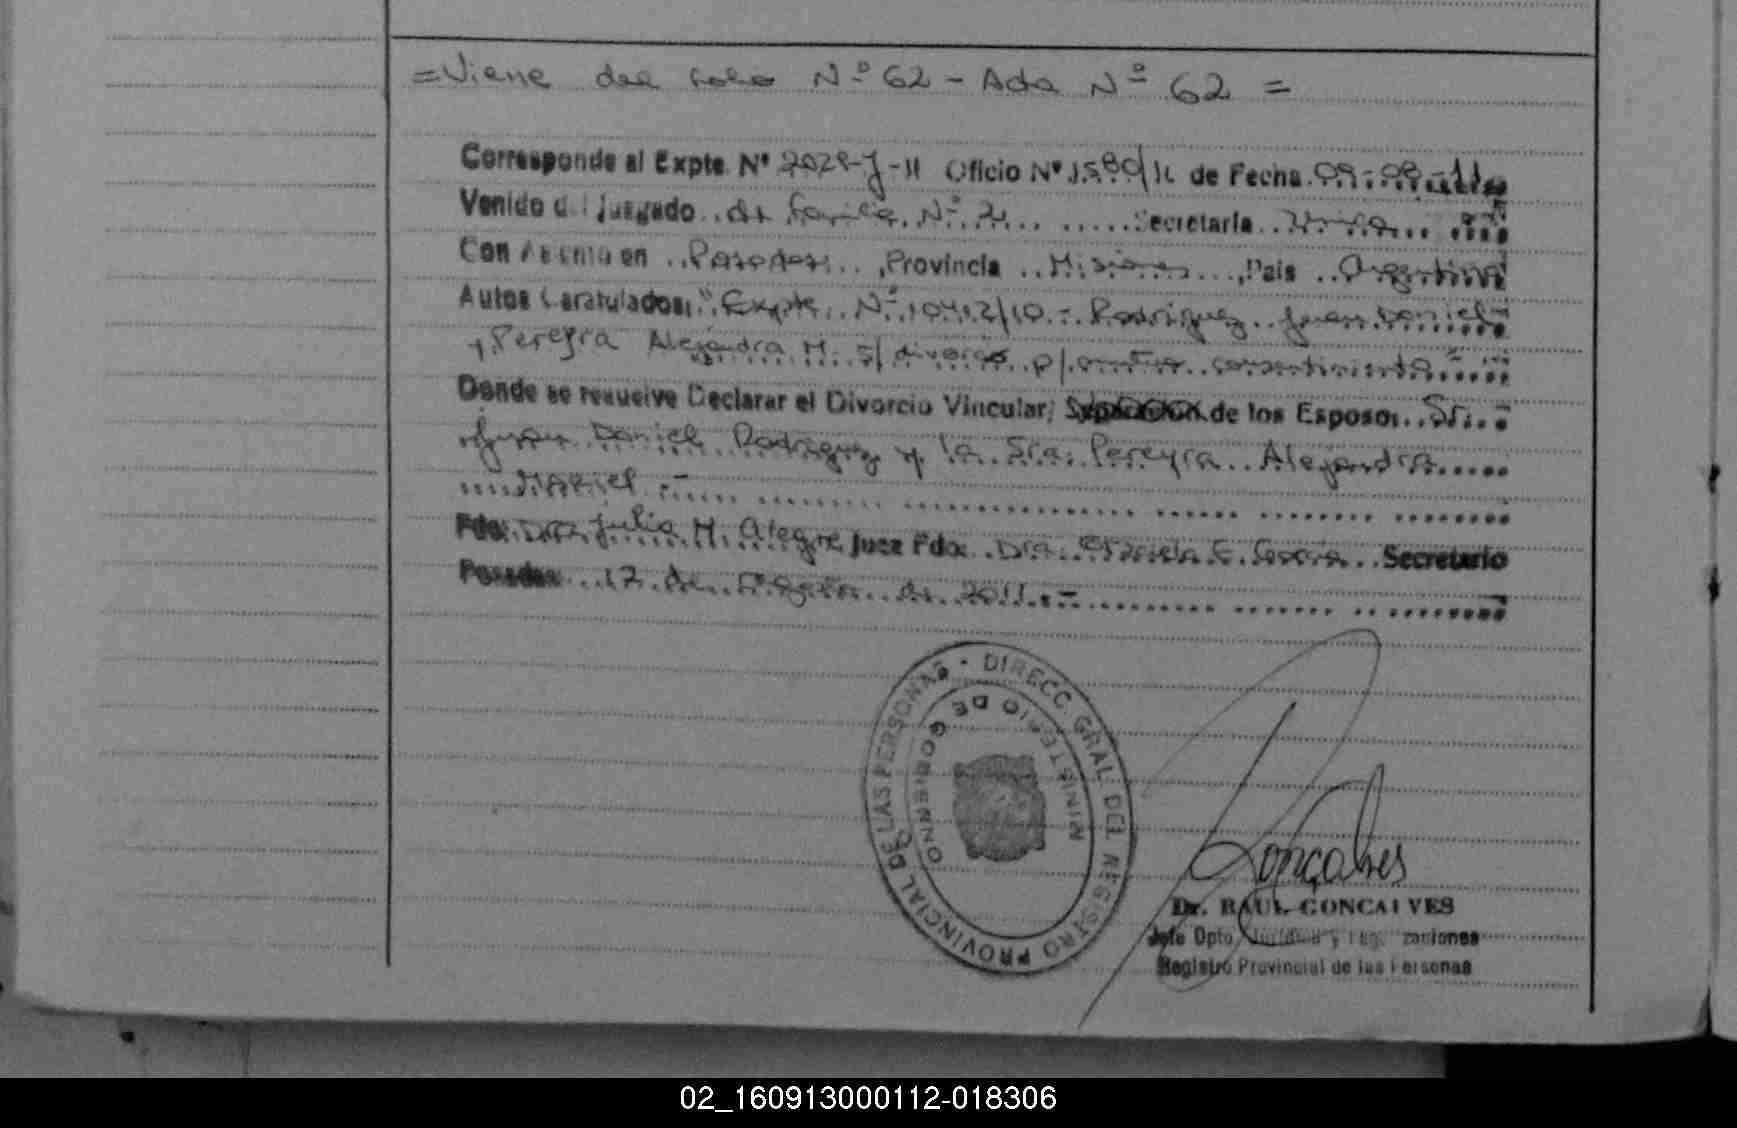 =Viene del folio Nº 62 - Acta Nº 62 =
Corresponde al Expte. Nº 2028-J-11 Oficio Nº 1580/11 de Fecha 09-08-11
Venido del Juzgado de Familia Nº 2 Secretaría Única
Con Asiento en Posadas, Provincia Misiones, País Argentina
Autos Caratulados, "Expte. Nº 10412/10 - Rodriguez Juan Daniel
y Pereyra Alejandra M. s/ divorcio p/ mutuo consentimiento
Donde se resuelve Declarar el Divorcio Vincular, de los Esposos Sr.
Juan Daniel Rodriguez y la Sra. Pereyra Alejandra
Fdo: Dra. Julia M. Alegre Juez Fdo: Dra. E. Secretario
Posadas 17 de Agosto de 2011.-
DIRECC. GRAL. DEL REGISTRO PROVINCIAL DE LAS PERSONAS
MINISTERIO DE GOBIERNO
Goncalves
Dr. RAUL GONCALVES
Jefe Dpto.
Registro Provincial de las Personas
02_160913000112-018306